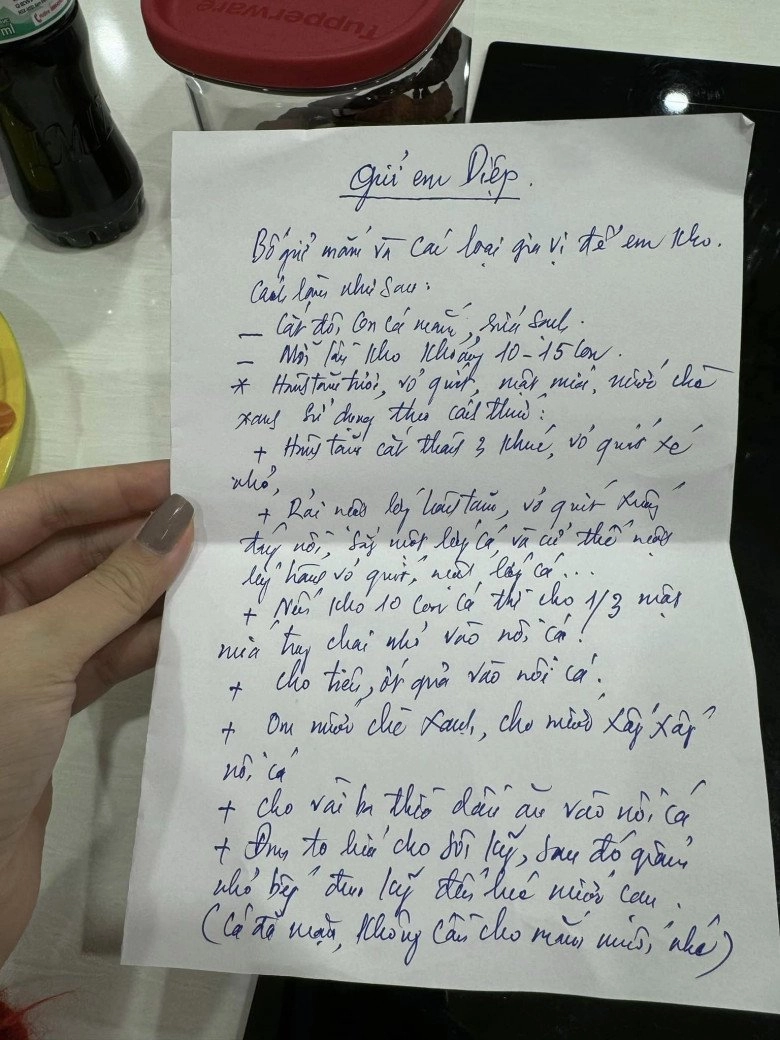 Tupperware
ml
Gửi em Diệp.
Bố gửi mắm và các loại gia vị để em kho.
Cách làm như sau:
- Cắt đôi con cá mắm, rửa sạch.
- Mỗi lần kho khoảng 10-15 con.
* Hành tăm tươi, vỏ quýt, mật mía, nước chè
xanh sử dụng theo cách thức:
+ Hành tăm cắt thành 3 khúc, vỏ quýt xé
nhỏ,
+ Rải một lớp hành tăm, vỏ quýt xuống
đáy nồi, sắp một lớp cá và cứ thế một
lớp hành vỏ quýt, một lớp cá...
+ Nếu kho 10 con cá thì cho 1/3 mật
mía trong chai nhỏ vào nồi cá.
+ cho tiêu, ớt quả vào nồi cá.
+ Om nước chè xanh, cho nước xấp xấp
nồi cá
+ cho vài ba thìa dầu ăn vào nồi cá
+ Đun to lửa cho sôi kỹ, sau đó giảm
nhỏ bếp đun kỹ đến hết nước can.
(Cá đã mặn, không cần cho mắm muối nhé)